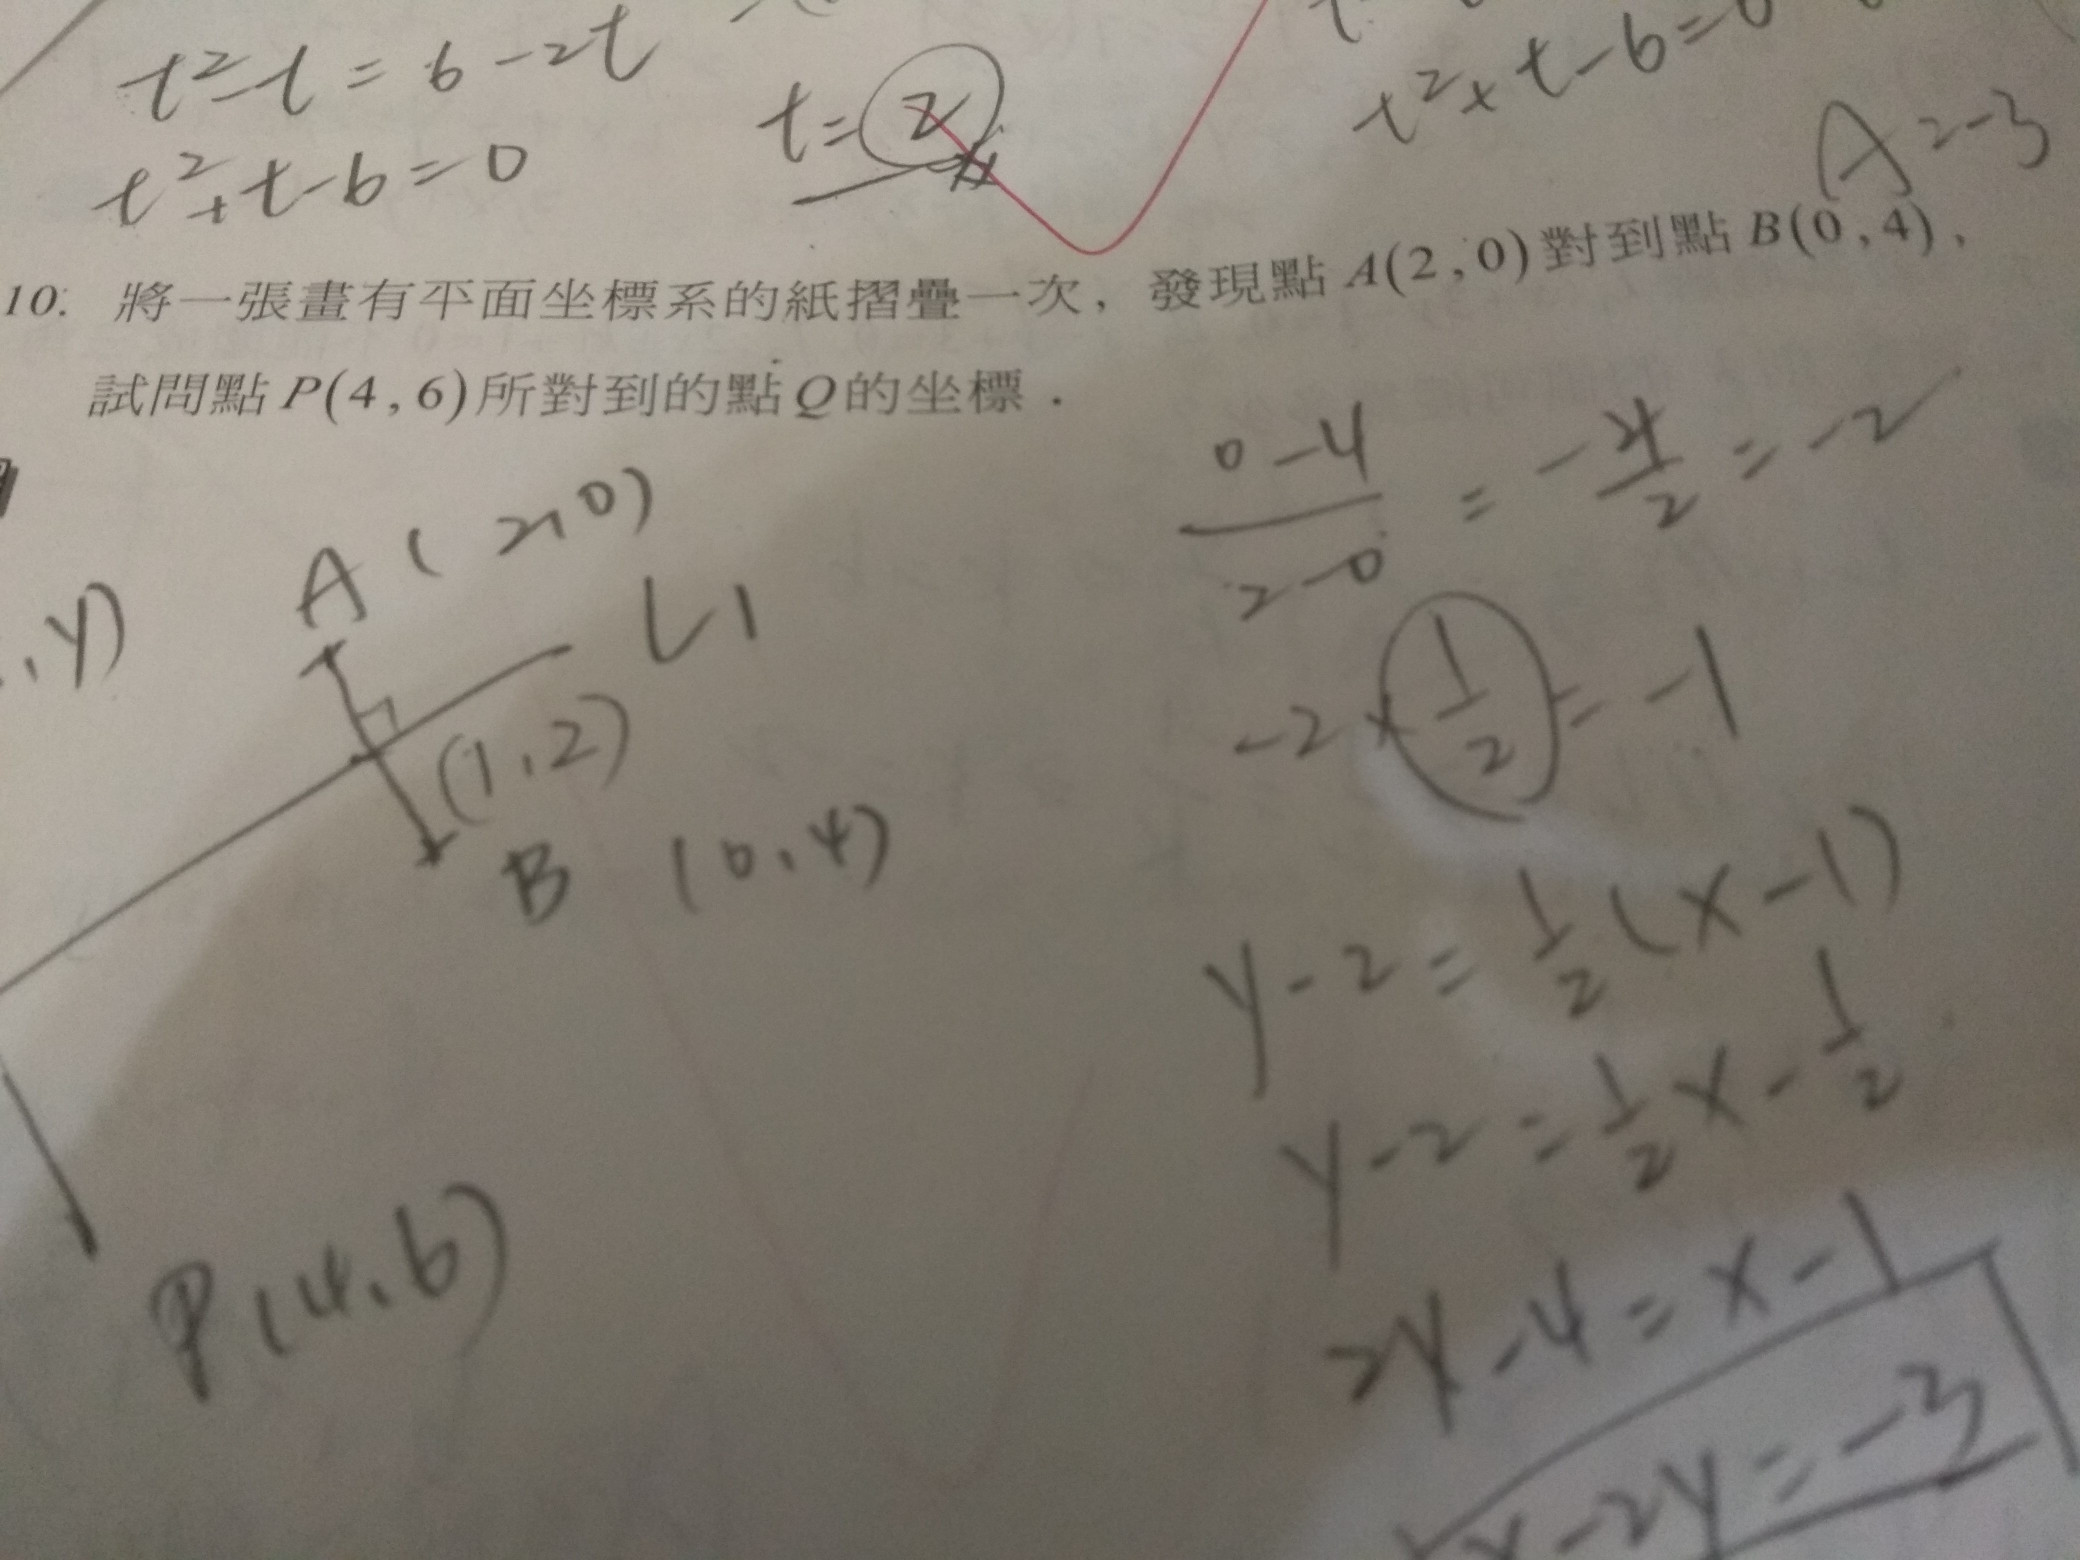 t²-t=6-2t
t²+t-6=0
t=2
t²+t-6=0
A=-3
10. 將一張畫有平面坐標系的紙摺疊一次，發現點 A(2,0) 對到點 B(0,4)，
試問點 P(4,6) 所對到的點 Q 的坐標．
,y)
A(2,0)
L1
(1,2)
B(0,4)
P(4,6)
0-4/2-0=-4/2=-2
-2×1/2=-1
y-2=1/2(x-1)
y-2=1/2x-1/2
2y-4=x-1
x-2y=-3